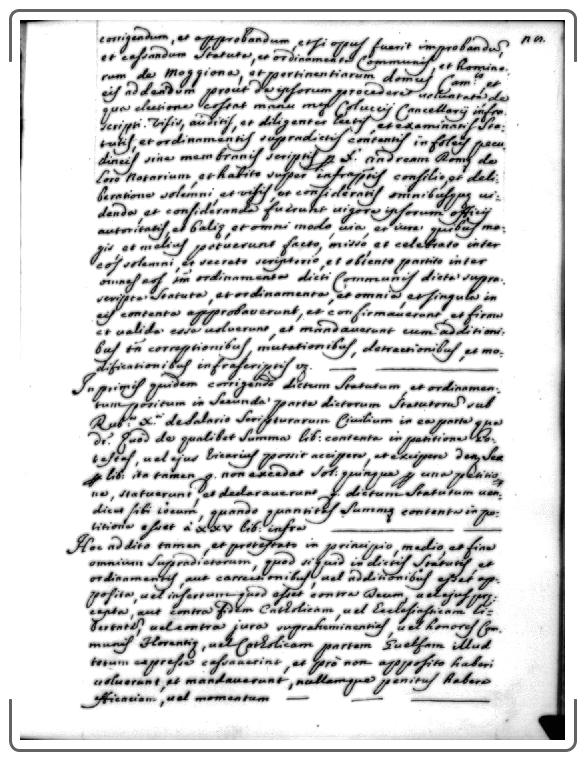 corrigendum, et approbandum, et si opus fuerit improbandũ,
et cassandum Statuta, et ordinamenta Communis, et homino-
rum de Moggiona, et pertinentiarum domus Cam.ls et
eis addendum prout de ipsorum procedere voluntate de
qua electione constat manu mei Coluccij Cancellarij infra-
scripti. Visis, auditis, et diligenter lectis, et examinatis Sta-
tutis, et ordinamentis supradictis contentis in foleis pecu
dineis sive membranis scriptis p S. Andream Romj de
Loro Notarium et habito super infrascriptis consilio, et deli-
beratione solemni et visis, et consideratis omnibusque vi-
dendis, et considerandis fuerunt vigore ipsorum officij
autoritatis, et balie, et omni modo, via, et iure, quibus ma-
gis et melius potuerunt facto, misso et celebrato inter
eos solemni, et secreto scruptinio, et obtento partito inter
omnes eos tm ordinamenta dicti Communis dicta supra-
scripta Statuta, et ordinamenta, et omnia, et singula in
eis contenta approbaverunt, et confirmaverunt, et firma
et valida esse voluerunt, et mandaverunt cum additioni-
bus tñ correptionibus mutationibus, detractionibus, et mo-
dificationibus infrascriptis vz.
In primis quidem corrigendo dictum Statutum, et ordinamen-
tum positum in Secunda parte dictorum Statutorũ sub
Rub.a X.a de salario Scripturarum Civilium in ea parte qua
dr. Quod de qualibet Summa lib: contenta in petitione Po-
testas, vel ejus Vicarius possit accipere, et excipere den. Sex
p lib: ita tamen q. non excedat sol: quinque p una petitio-
ne, statuerunt, et declaraverunt, q. dictum Statutum ven-
dicet sibi locum, quando quantitas Summę contenta in pe-
titione esset à XXV lib: infra
Hoc addito tamen, et protestato in principio, medio, et fine
omnium Supradictorum, quod siquid in dictis Statutis, et
ordinamentis, aut correctionibus, vel additionibus esset ap-
posita, vel insertum quod esset contra Deum, vel ejus prę-
cepta, aut contra fidem Catholicam, vel Ecclesiasticam li-
bertatẽ, vel contra jura supraheminentis, vel honores Com-
munis Florentię, vel Catholicam partem Guelfam illud
totum expresse cassaverint, et pro non apposito haberi
voluerunt, et mandaverunt, nullamque penitus habere
efficaciam, vel momentum